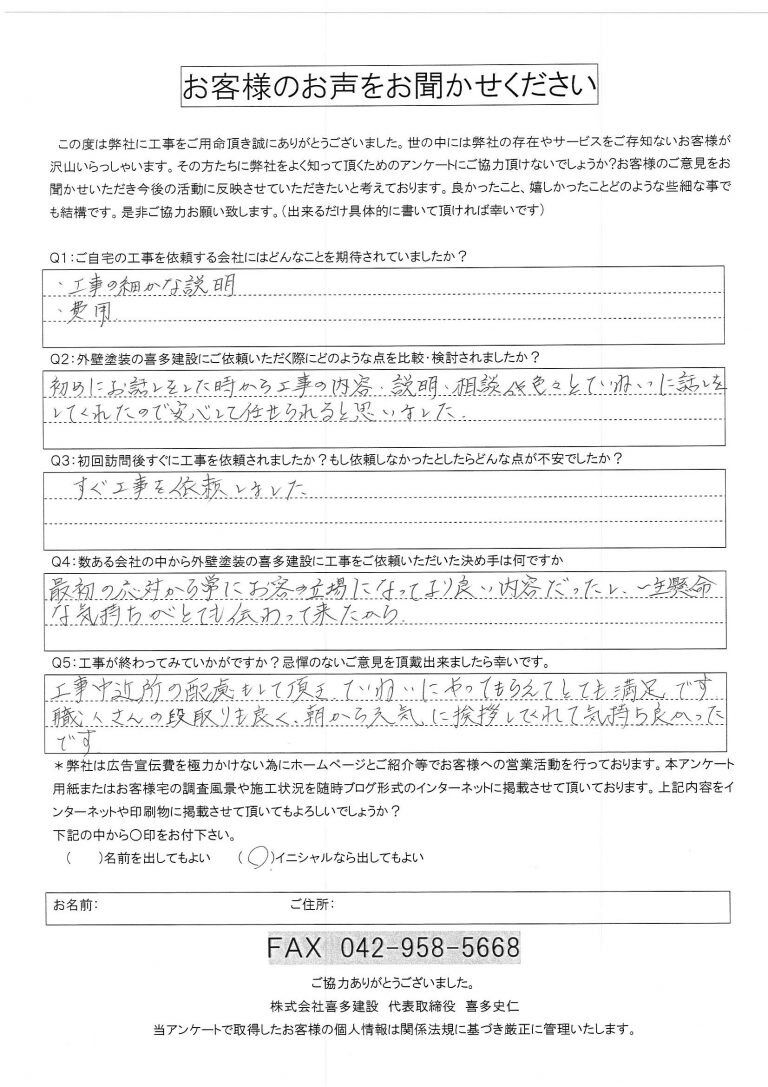 お客様のお声をお聞かせください
この度は弊社に工事をご用命頂き誠にありがとうございました。世の中には弊社の存在やサービスをご存知ないお客様が
沢山いらっしゃいます。その方たちに弊社をよく知って頂くためのアンケートにご協力頂けないでしょうか?お客様のご意見をお
聞かせいただき今後の活動に反映させていただきたいと考えております。良かったこと、嬉しかったことどのような些細な事で
も結構です。是非ご協力お願い致します。(出来るだけ具体的に書いて頂ければ幸いです)
Q1:ご自宅の工事を依頼する会社にはどんなことを期待されていましたか?
・工事の細かな説明
・費用
Q2:外壁塗装の喜多建設にご依頼いただく際にどのような点を比較・検討されましたか?
初めにお話しをした時から工事の内容・説明・相談 色々とていねいに話しを
してくれたので安心して任せられると思いました。
Q3:初回訪問後すぐに工事を依頼されましたか?もし依頼しなかったとしたらどんな点が不安でしたか?
すぐ工事を依頼しました
Q4:数ある会社の中から外壁塗装の喜多建設に工事をご依頼いただいた決め手は何ですか
最初の応対から常にお客の立場になってより良い内容だったし、一生懸命
な気持ちがとても伝わって来たから。
Q5:工事が終わってみていかがですか?忌憚のないご意見を頂戴出来ましたら幸いです。
工事中近所の配慮もして頂き、ていねいにやってもらえてとても満足です
職人さんの段取りも良く、朝から元気に挨拶してくれて気持ち良かった
です
*弊社は広告宣伝費を極力かけない為にホームページとご紹介等でお客様への営業活動を行っております。本アンケート
用紙またはお客様宅の調査風景や施工状況を随時ブログ形式のインターネットに掲載させて頂いております。上記内容をイ
ンターネットや印刷物に掲載させて頂いてもよろしいでしょうか?
下記の中から○印をお付下さい。
( )名前を出してもよい (○)イニシャルなら出してもよい
お名前: ご住所:
FAX 042-958-5668
ご協力ありがとうございました。
株式会社喜多建設 代表取締役 喜多史仁
当アンケートで取得したお客様の個人情報は関係法規に基づき厳正に管理いたします。